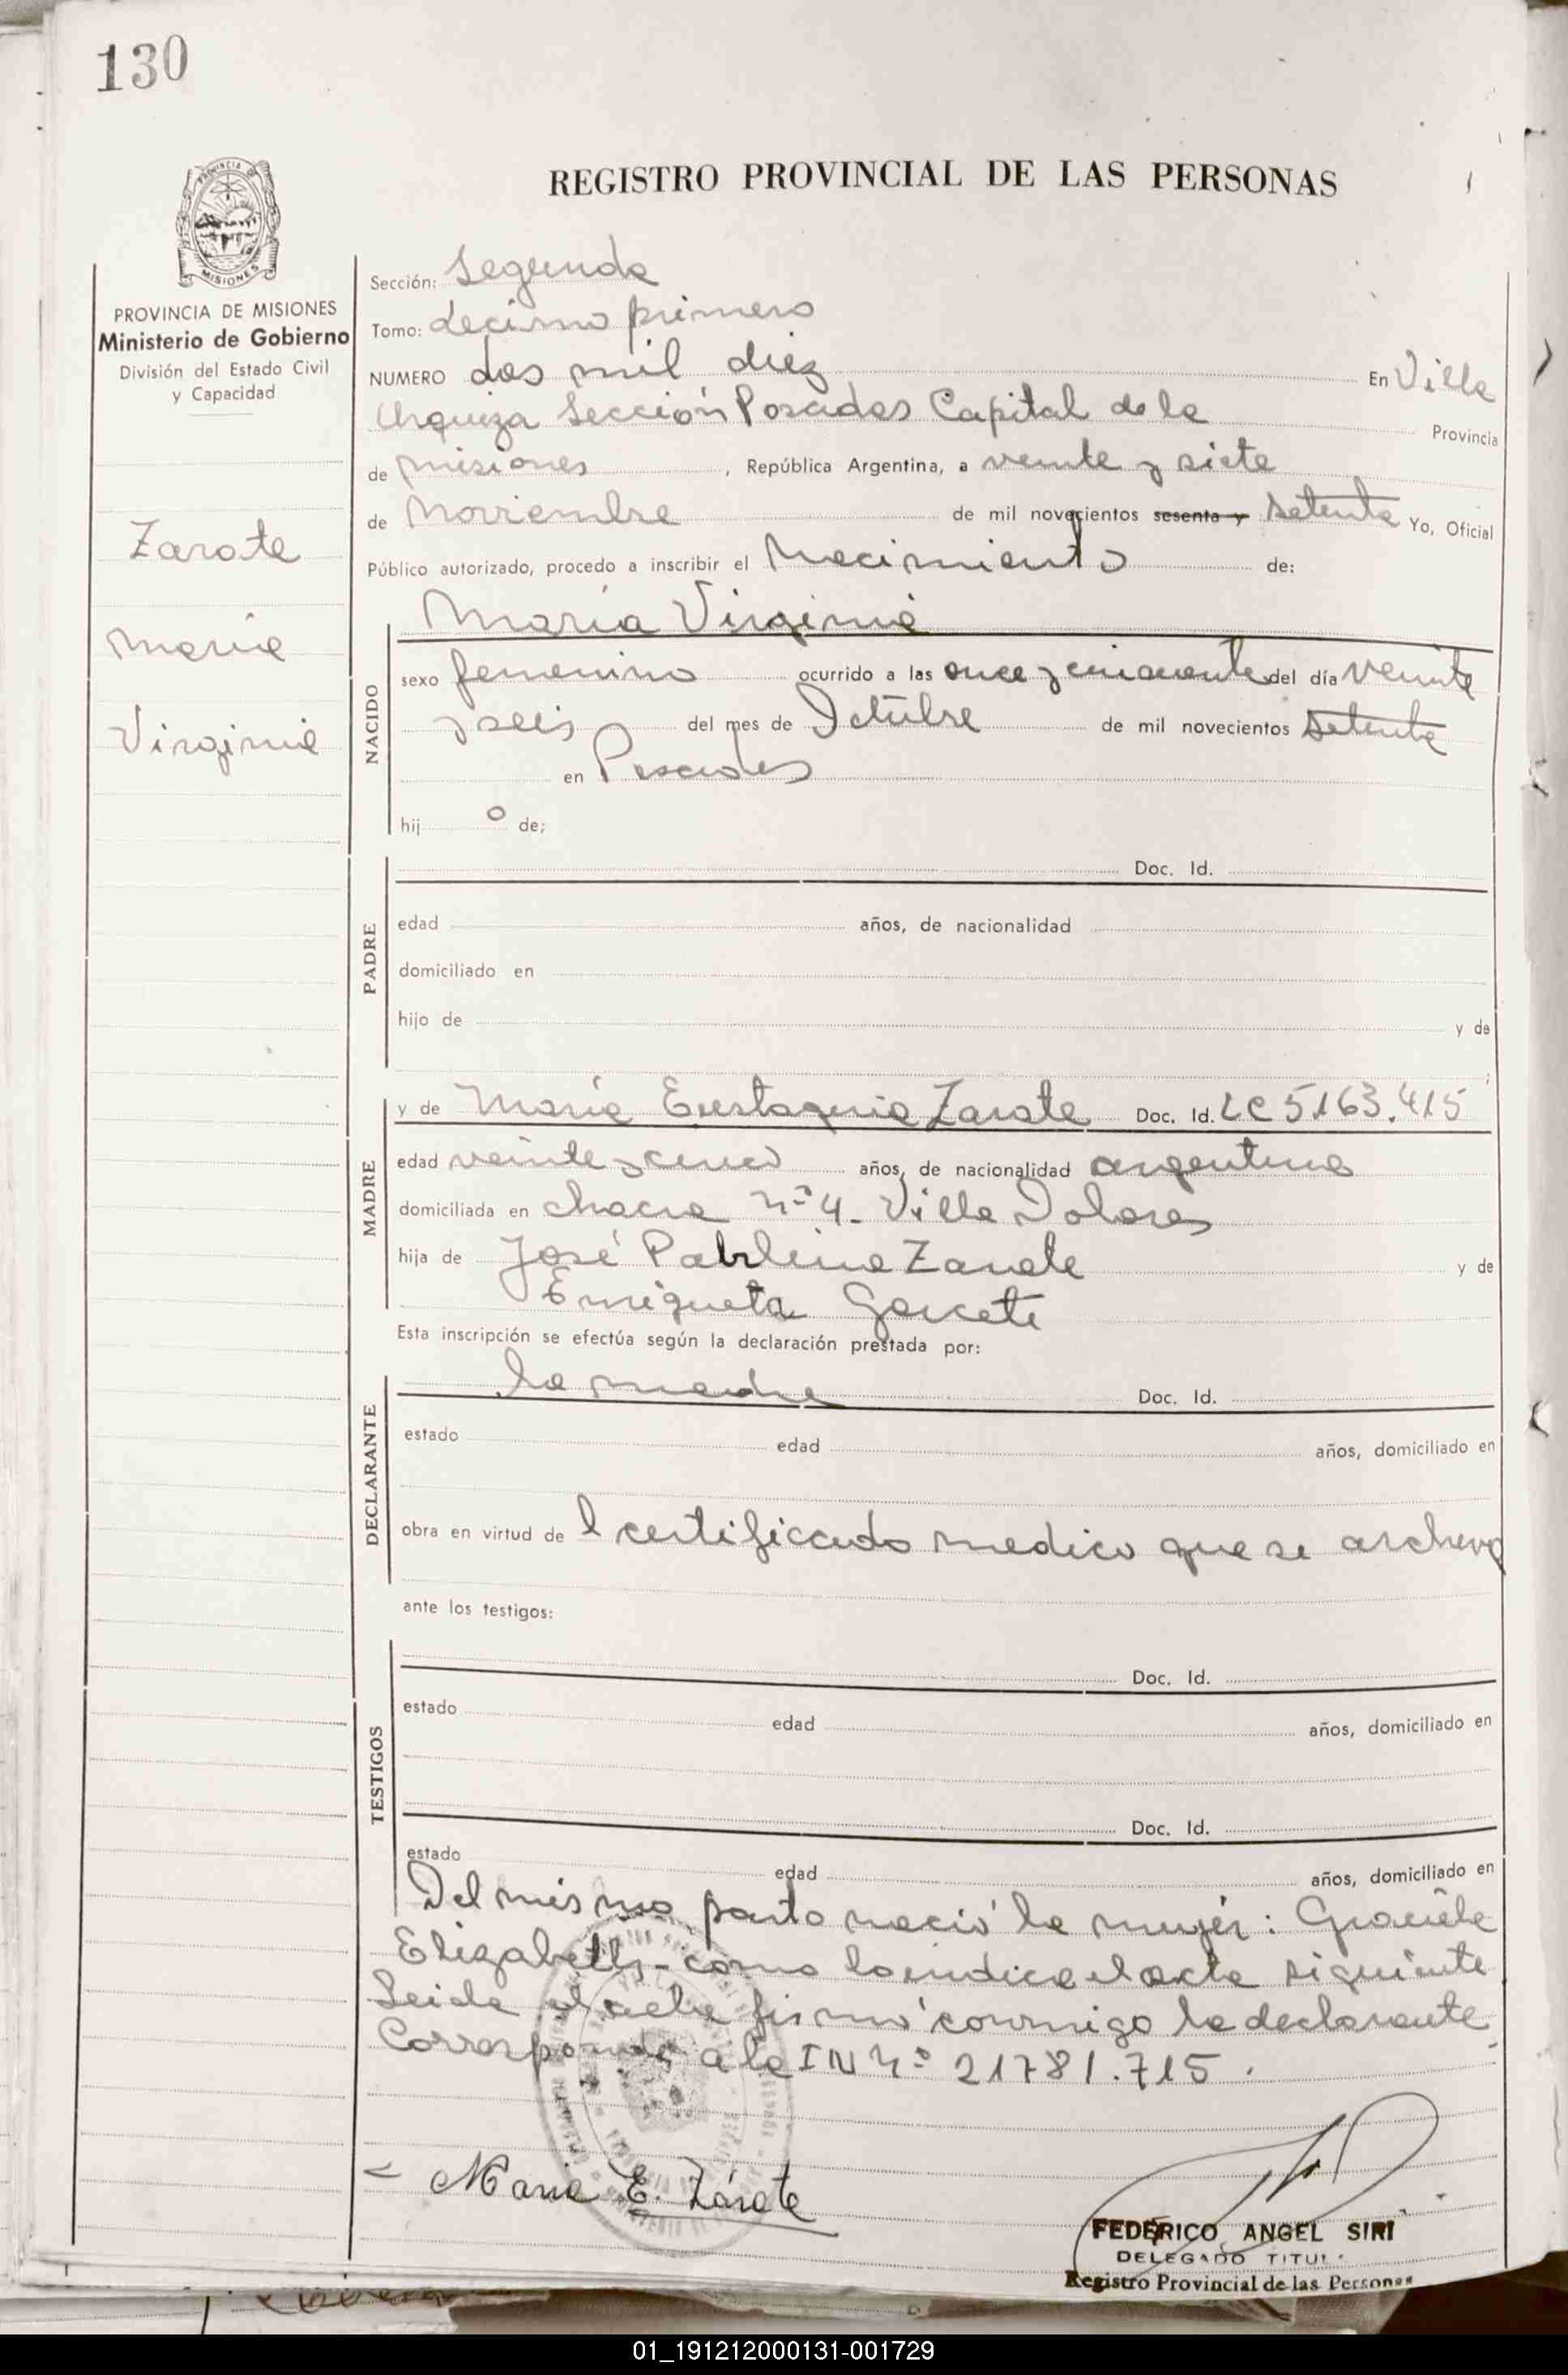 130
REGISTRO PROVINCIAL DE LAS PERSONAS
PROVINCIA
MISIONES
PROVINCIA DE MISIONES
Ministerio de Gobierno
División del Estado Civil
y Capacidad
Zarate
María
Virginia
Sección: Segunda
Tomo: decimo primero
NUMERO dos mil diez En Villa
Urquiza Sección Posadas Capital de la Provincia
de Misiones, República Argentina, a veinte y siete
de Noviembre de mil novecientos sesenta y setenta Yo, Oficial
Público autorizado, procedo a inscribir el Nacimiento de:
María Virginia
NACIDO
sexo femenino ocurrido a las once y cincuenta del día veinte
y seis del mes de Octubre de mil novecientos setenta
en Posadas
hij o de;
PADRE
Doc. Id.
edad años, de nacionalidad
domiciliado en
hijo de y de
;
MADRE
y de María Eustaquia Zarate Doc. Id. LC 5163.415
edad veinte y cinco años, de nacionalidad argentina
domiciliada en chacra nº 4 - Villa Dolores
hija de José Zarate y de
Enriqueta Garcete
Esta inscripción se efectúa según la declaración prestada por:
DECLARANTE
la madre Doc. Id.
estado edad años, domiciliado en
obra en virtud de l certificado medico que se archiva
ante los testigos:
TESTIGOS
Doc. Id.
estado edad años, domiciliado en
Doc. Id.
estado edad años, domiciliado en
Del mismo parto nació la mujer: Graciela
Elizabeth - como lo indica el acta siguiente
Leida el acta firmó conmigo la declarante
Corresponde a la IN Nº 21781.715.
Maria E. Zárate
FEDERICO ANGEL SIRI
DELEGADO TITUL
Registro Provincial de las Personas
01_191212000131-001729